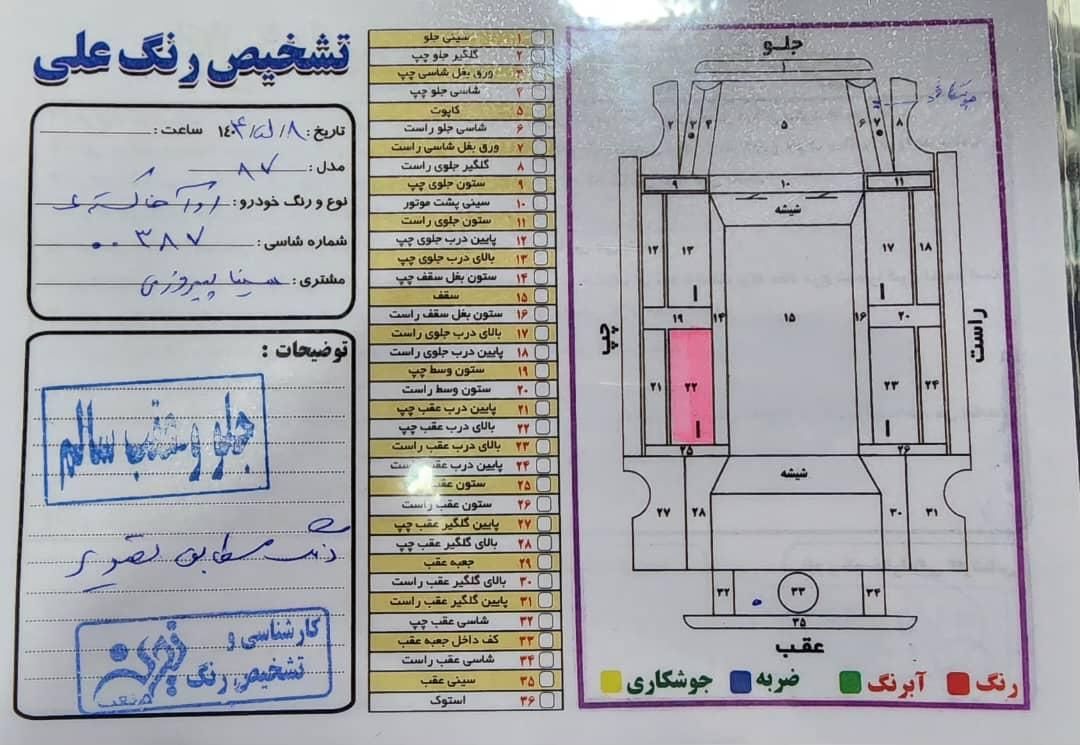 تشخیص رنگ علی
تاریخ : ۱۴۰۴/ /۱۸ ساعت :
مدل : ۸۷
نوع و رنگ خودرو :
شماره شاسی : ۰۰۳۸۷
مشتری : سینا پیروزی
توضیحات :
جلو و عقب سالم
مطابق تصویر
کارشناسی و
تشخیص رنگ
۱ سینی جلو
۲ گلگیر جلو چپ
۳ ورق بغل شاسی چپ
۴ شاسی جلو چپ
۵ کاپوت
۶ شاسی جلو راست
۷ ورق بغل شاسی راست
۸ گلگیر جلوی راست
۹ ستون جلوی چپ
۱۰ سینی پشت موتور
۱۱ ستون جلوی راست
۱۲ پایین درب جلوی چپ
۱۳ بالای درب جلوی چپ
۱۴ ستون بغل سقف چپ
۱۵ سقف
۱۶ ستون بغل سقف راست
۱۷ بالای درب جلوی راست
۱۸ پایین درب جلوی راست
۱۹ ستون وسط چپ
۲۰ ستون وسط راست
۲۱ پایین درب عقب چپ
۲۲ بالای درب عقب چپ
۲۳ بالای درب عقب راست
۲۴ پایین درب عقب راست
۲۵ ستون عقب
۲۶ ستون عقب راست
۲۷ پایین گلگیر عقب چپ
۲۸ بالای گلگیر عقب چپ
۲۹ جعبه عقب
۳۰ بالای گلگیر عقب راست
۳۱ پایین گلگیر عقب راست
۳۲ شاسی عقب چپ
۳۳ کف داخل جعبه عقب
۳۴ شاسی عقب راست
۳۵ سینی عقب
۳۶ استوک
جلـو
۱
۲ ۳ ۴ ۵ ۶ ۷ ۸
۹ ۱۰ ۱۱
شیشه
۱۲ ۱۳ ۱۷ ۱۸
۱۹ ۱۴ ۱۵ ۱۶ ۲۰
چپ
راست
۲۱ ۲۲ ۲۳ ۲۴
۲۵ ۲۶
شیشه
۲۷ ۲۸ ۳۰ ۳۱
۳۲ ۳۳ ۳۴
۳۵
عقـب
رنگ آبرنگ ضربه جوشکاری